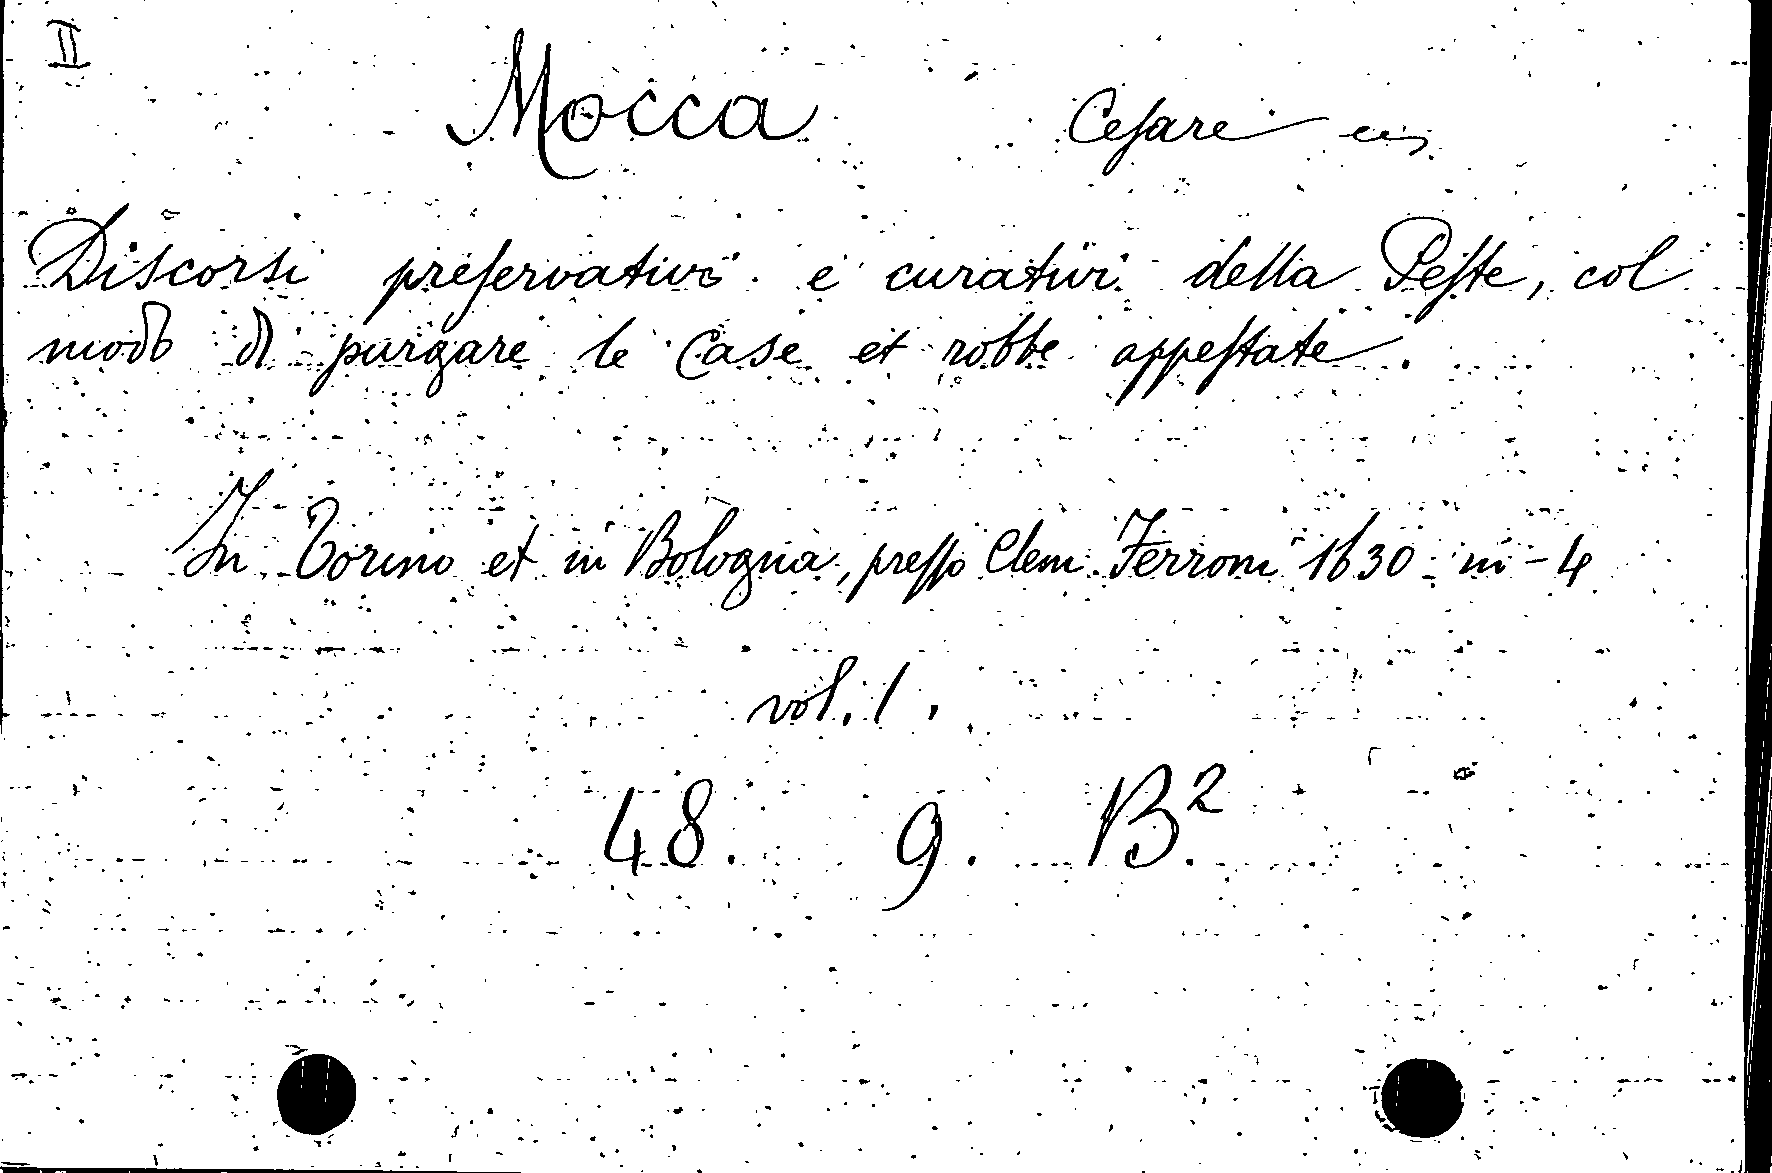 II
Mocca Cesare
Discorsi preservativi e curativi della Peste, col
modo di purgare le Case et robbe appestate.
In Torino et in Bologna, presso Clem. Ferroni 1630 in-4
vol. 1.
48. 9. B²